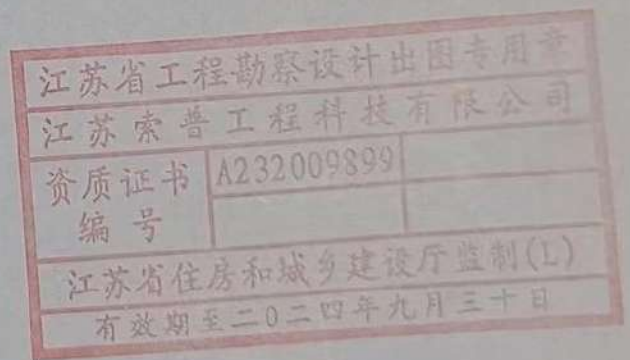 江苏省工程勘察设计出图专用章
江苏索普工程科技有限公司
资质证书
编号
A232009899
江苏省住房和城乡建设厅监制(L)
有效期至二〇二四年九月三十日